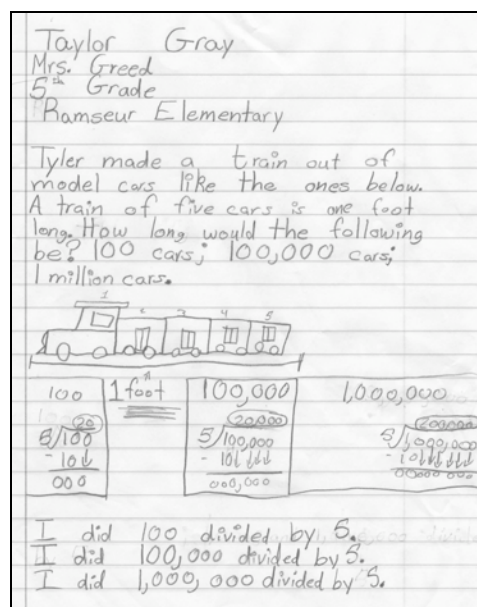 Taylor Gray
Mrs. Greed
5th Grade
Ramseur Elementary
Tyler made a train out of
model cars like the ones below.
A train of five cars is one foot
long. How long would the following
be? 100 cars; 100,000 cars;
1 million cars.
1 2 3 4 5
1 foot
100
20
5/100
- 10↓
000
100,000
20,000
5/100,000
- 10↓↓↓↓
000,000
1,000,000
200,000
5/1,000,000
- 10↓↓↓↓↓
00000 000
I did 100 divided by 5.
I did 100,000 divided by 5.
I did 1,000,000 divided by 5.